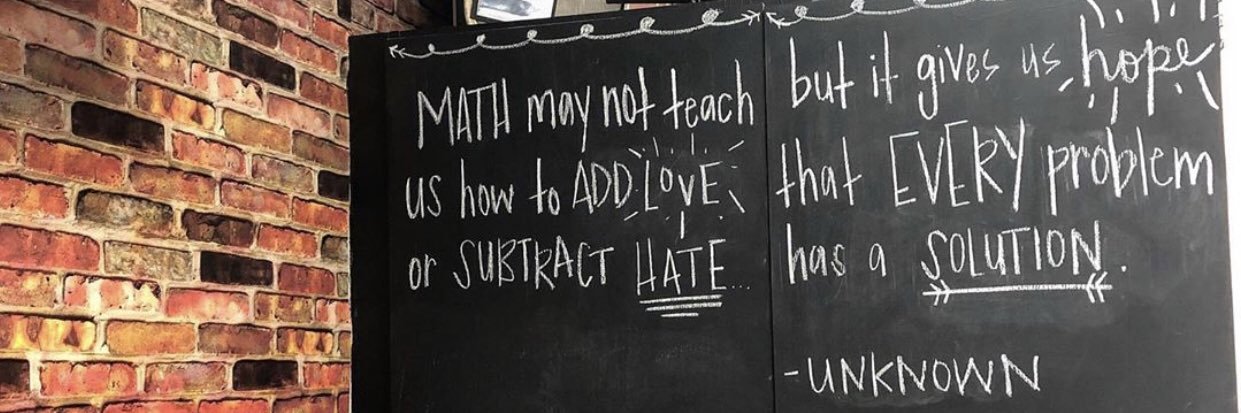 MATH may not teach
us how to ADD LOVE
or SUBTRACT HATE...
but it gives us hope
that EVERY problem
has a SOLUTION.
-UNKNOWN